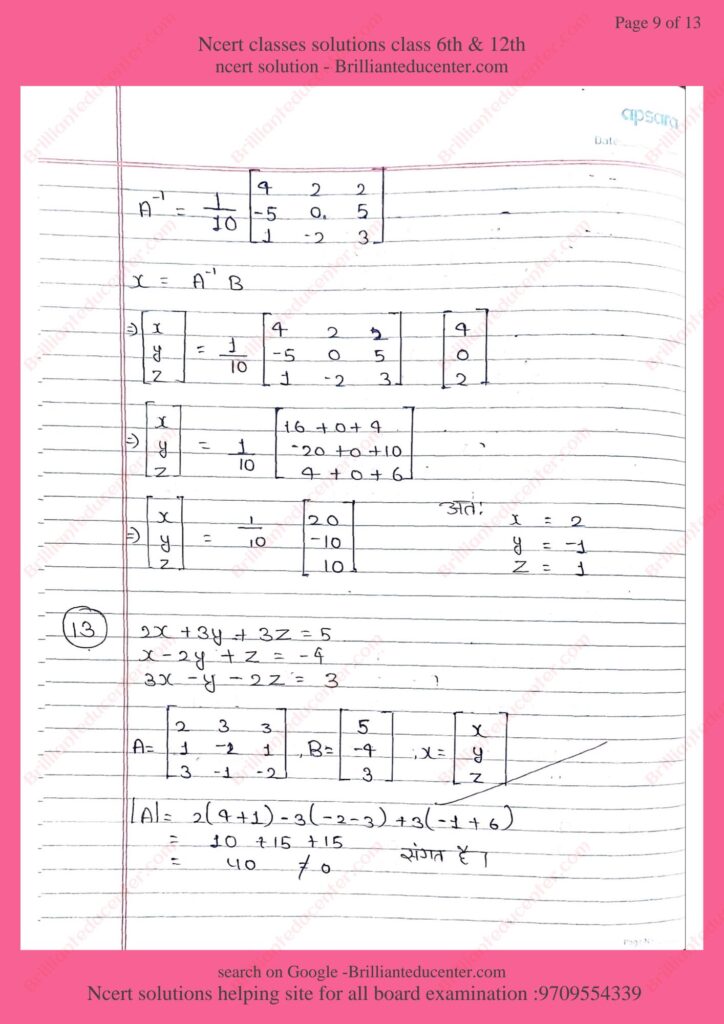 Page 9 of 13
Ncert classes solutions class 6th & 12th
ncert solution - Brillianteducenter.com
apsara
Date
A⁻¹ = 1/10 [4 2 2
-5 0. 5
1 -2 3]
x = A⁻¹ B
⇒ [x y z] = 1/10 [4 2 2
-5 0 5
1 -2 3] [4 0 2]
⇒ [x y z] = 1/10 [16 + 0 + 4
-20 + 0 + 10
4 + 0 + 6]
⇒ [x y z] = 1/10 [20 -10 10]
अतः x = 2
y = -1
z = 1
13 2x + 3y + 3z = 5
x - 2y + z = -4
3x - y - 2z = 3
A = [2 3 3
1 -2 1
3 -1 -2] , B = [5 -4 3] , x = [x y z]
|A| = 2(4+1) - 3(-2-3) + 3(-1+6)
= 10 + 15 + 15
= 40 ≠ 0 संगत है।
search on Google -Brillianteducenter.com
Ncert solutions helping site for all board examination :9709554339
Brillianteducenter.com